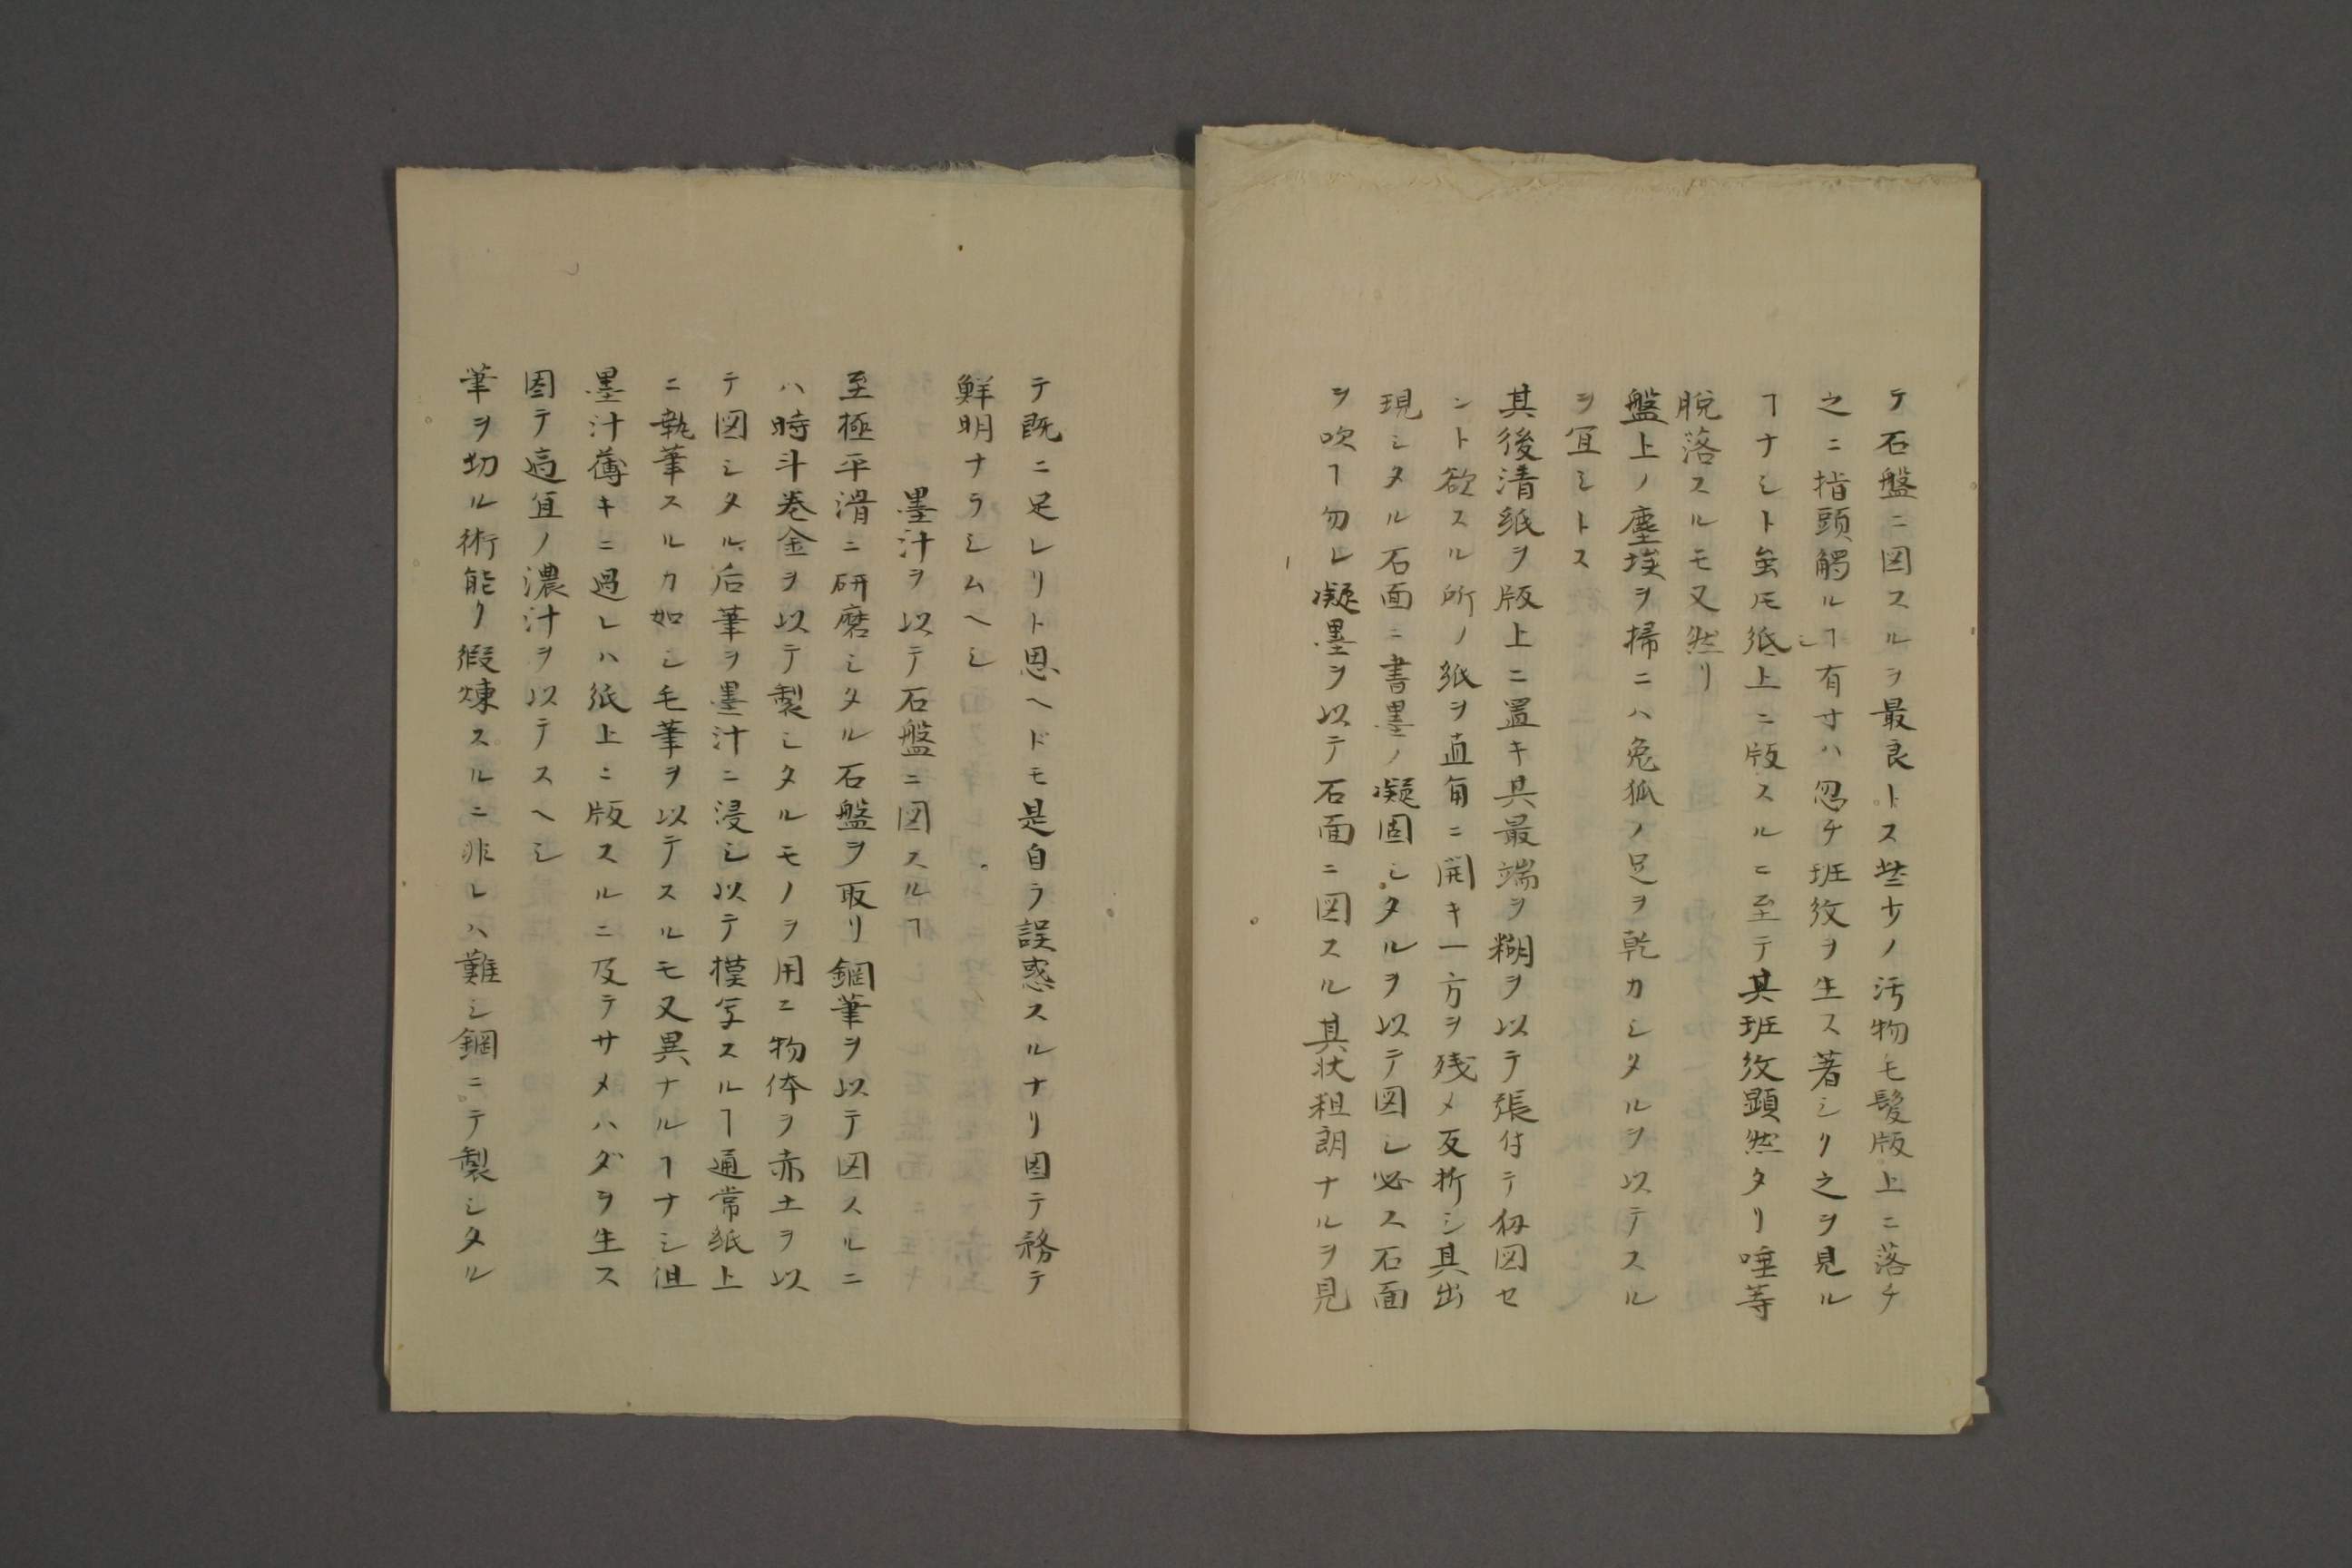 テ石盤ニ図スルヲ最良トス些少ノ汚物モ髪版上ニ落チ
之ニ指頭觸ルヿ有寸ハ忽チ班紋ヲ生ス著シリ之ヲ見ル
ヿナシト虽𪜈紙上ニ版スルニ至テ其班紋顕然タリ唾等
脱落スルモ又然リ
盤上ノ塵埃ヲ掃ニハ兔狐ノ足ヲ乾カシタルヲ以テスル
ヲ宜シトス
其後清紙ヲ版上ニ置キ其最端ヲ糊ヲ以テ張付テ扨図セ
ント欲スル所ノ紙ヲ直角ニ開キ一方ヲ残メ反折シ其出
現シタル石面ニ書墨ノ凝固シタルヲ以テ図シ必ス石面
ヲ吹ヿ勿レ凝墨ヲ以テ石面ニ図スル其状粗朗ナルヲ見
テ既ニ足レリト思ヘドモ是自ラ誤惑スルナリ因テ務テ
鮮明ナラシムヘシ
墨汁ヲ以テ石盤ニ図スルヿ
至極平滑ニ研磨シタル石盤ヲ取リ鋼筆ヲ以テ図スルニ
ハ時斗巻金ヲ以テ製シタルモノヲ用ニ物体ヲ赤土ヲ以
テ図シタル后筆ヲ墨汁ニ浸シ以テ摸写スルヿ通常紙上
ニ執筆スルカ如シ毛筆ヲ以テスルモ又異ナルヿナシ但
墨汁薄キニ過レハ紙上ニ版スルニ及テサメハダヲ生ス
因テ適宜ノ濃汁ヲ以テスヘシ
筆ヲ切ル術能リ煅煉スルニ非レハ難シ鋼ニテ製シタル